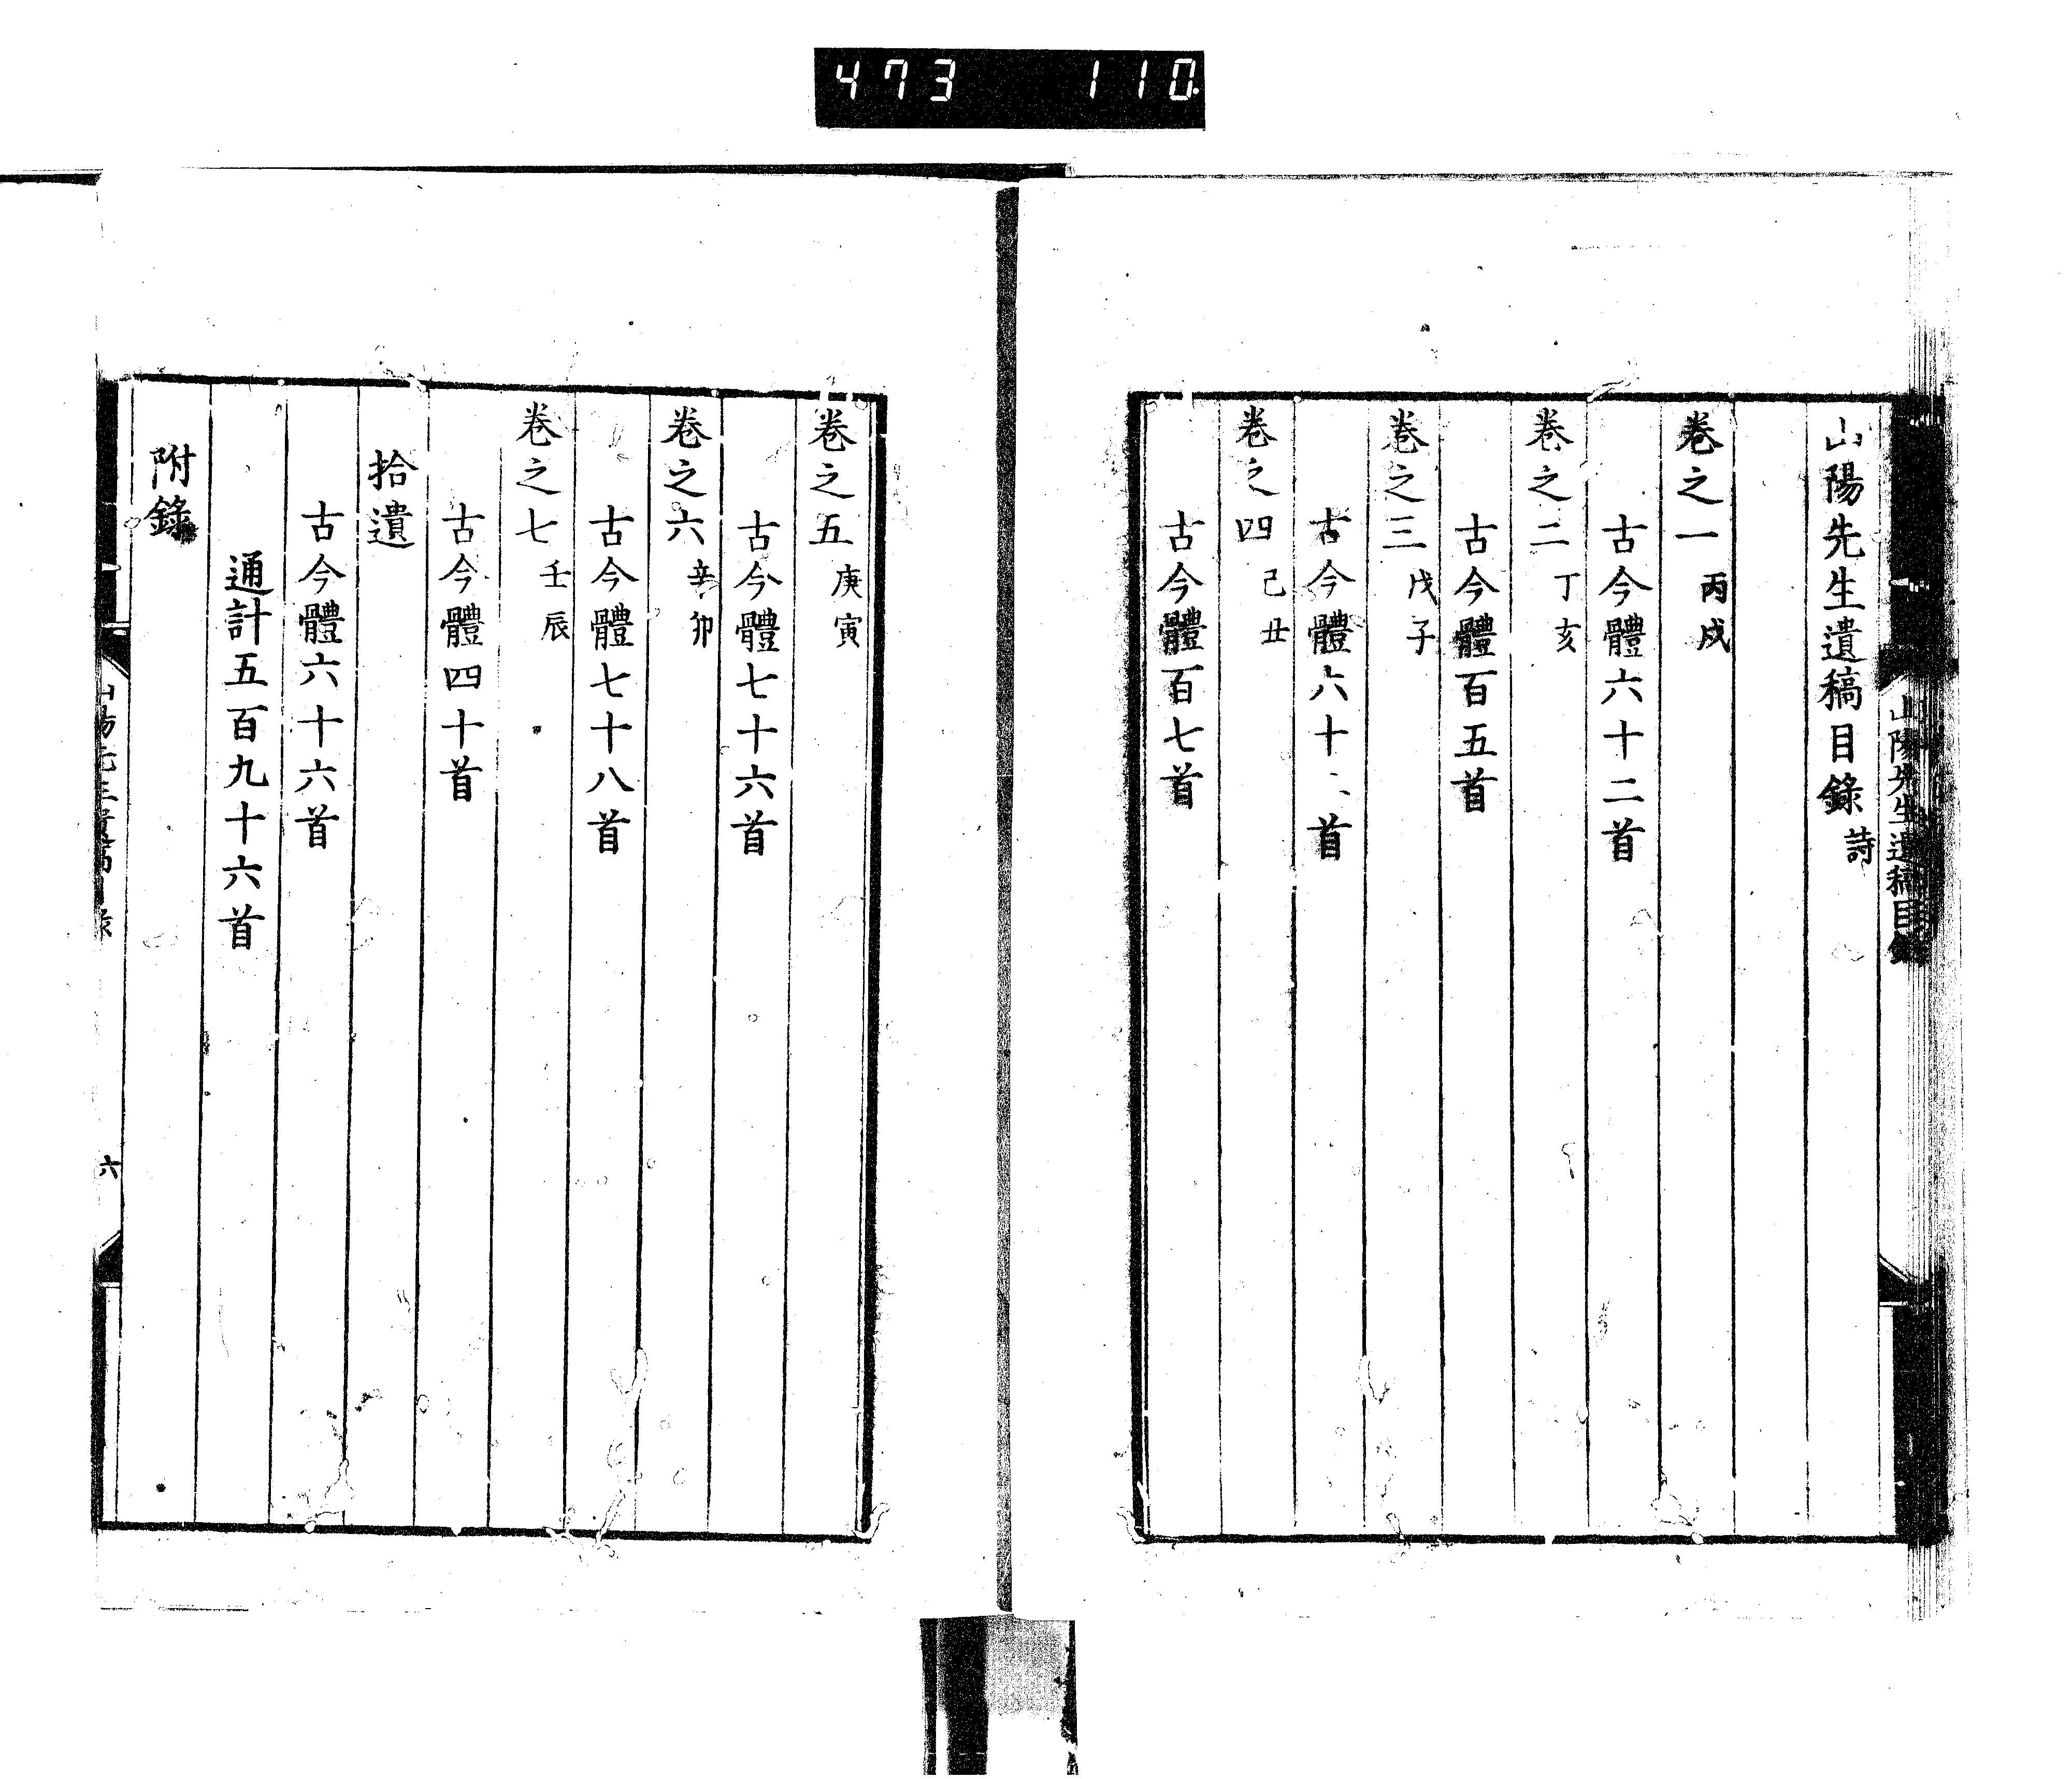 473 110
山陽先生遺稿目錄
山陽先生遺稿目錄 詩
卷之一 丙戌
古今體六十二首
卷之二 丁亥
古今體百五首
卷之三 戊子
古今體六十二首
卷之四 己丑
古今體百七首
卷之五 庚寅
古今體七十六首
卷之六 辛卯
古今體七十八首
卷之七 壬辰
古今體四十首
拾遺
古今體六十六首
通計五百九十六首
附錄
六